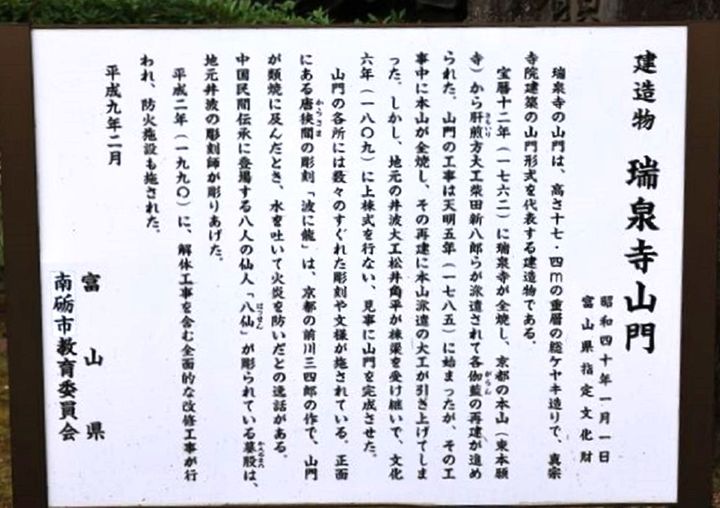 建造物 瑞泉寺山門
昭和四十年一月一日
富山県指定文化財
瑞泉寺の山門は、高さ十七・四mの重層の総ケヤキ造りで、真宗
寺院建築の山門形式を代表する建造物である。
宝暦十二年(一七六二)に瑞泉寺が全焼し、京都の本山(東本願
寺)から肝煎方大工柴田新八郎らが派遣されて各伽藍の再建が進め
られた。山門の工事は天明五年(一七八五)に始まったが、その工
事中に本山が全焼し、その再建に本山派遣の大工が引き上げてしま
った。しかし、地元の井波大工松井角平が棟梁を受け継いで、文化
六年(一八〇九)に上棟式を行ない、見事に山門を完成させた。
山門の各所には数々のすぐれた彫刻や文様が施されている。正面
にある唐狭間の彫刻「波に龍」は、京都の前川三四郎の作で、山門
が類焼に及んだとき、水を吐いて火災を防いだとの逸話がある。
中国民間伝承に登場する八人の仙人「八仙」が彫られている蟇股は、
地元井波の彫刻師が彫りあげた。
平成二年(一九九〇)に、解体工事を含む全面的な改修工事が行
われ、防火施設も施された。
平成九年二月
富山県
南砺市教育委員会